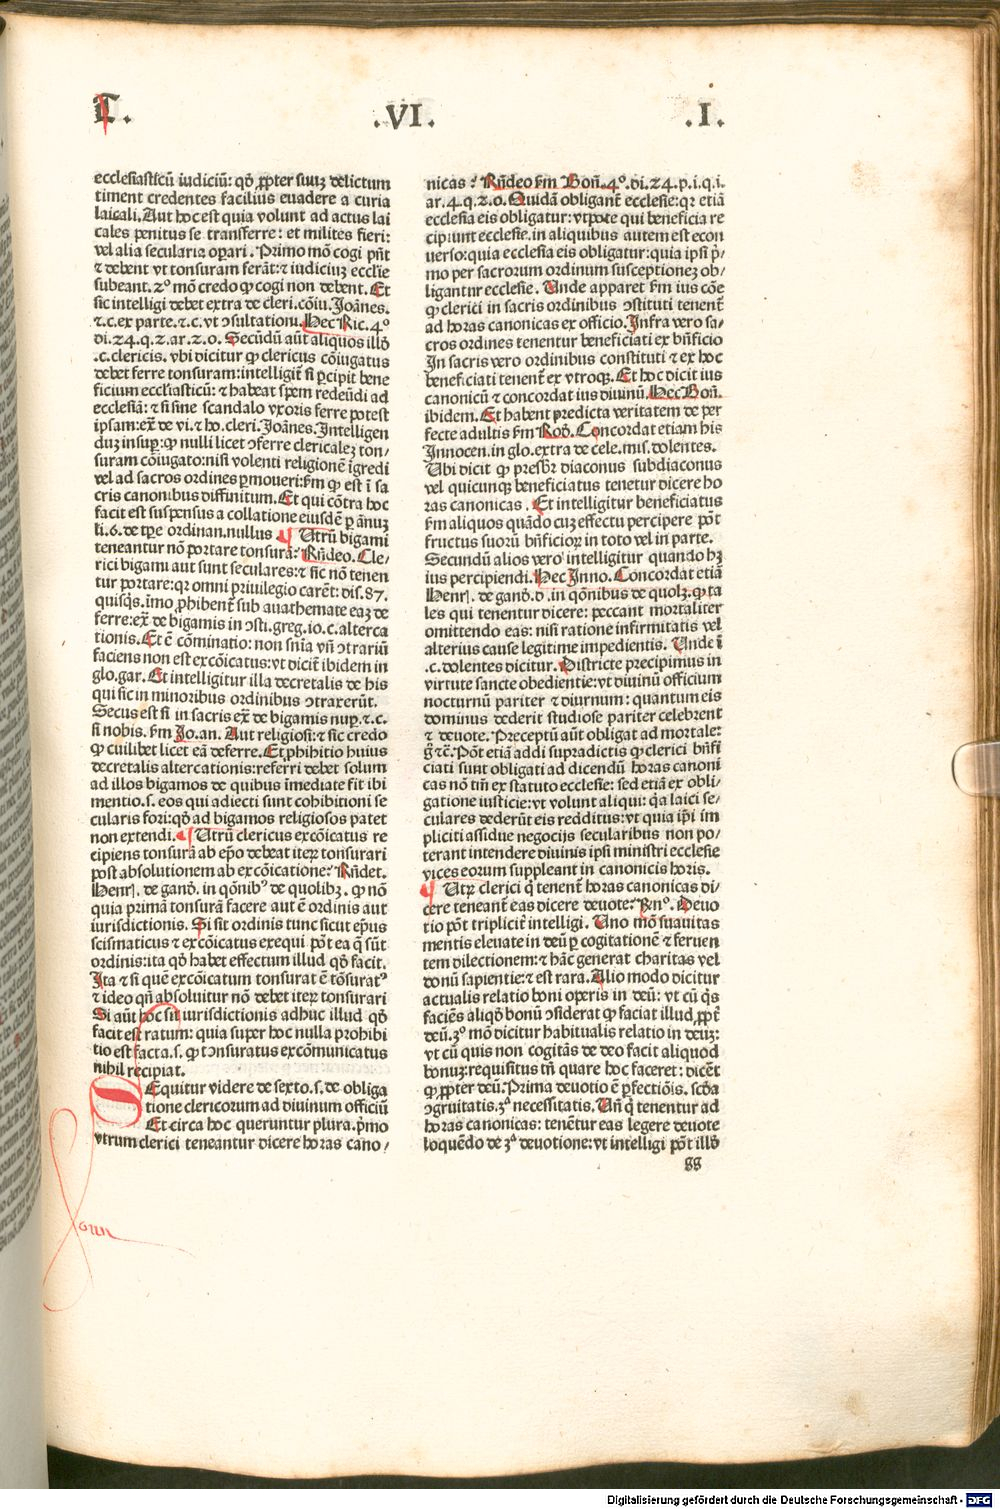 T.
.VI.
.I.
ecclesiasticū iudiciū: qđ ꝓpter suuꝫ delictum
timent credentes facilius euadere a curia
laicali. Aut hoc est quia volunt ad actus lai
cales penitus se transferre: et milites fieri:
vel alia secularia oꝑari. Primo mō cogi pñt
⁊ debent vt tonsuram ferāt: ⁊ iudiciuꝫ ecclīe
subeant. 2º mō credo ꝙ cogi non debent. Et
sic intelligi debet extra de cleri. cōiu. Joānes.
⁊.c. ex parte. ⁊.c. vt ↄsultationi. Hec Ric. 4º
di. 24. q. 2. ar. 2. o. Secūdū aūt aliquos illđ
.c. clericis. vbi dicitur ꝙ clericus cōiugatus
debet ferre tonsuram: intelligit̄ si ꝑcipit bene
ficium eccl̄iasticū: ⁊ habeat spem redeūdi ad
ecclesiā: ⁊ si sine scandalo vxoris ferre potest
ipsam: ex̄ de vi. ⁊ ho. cleri. Joānes. Intelligen
duꝫ insuꝑ: ꝙ nulli licet ↄferre clericaleꝫ ton/
suram cōiugato: nisi volenti religionē īgredi
vel ad sacros ordines ꝓmoueri: ẜm ꝙ est ī sa
cris canonibus diffinitum. Et qui cōtra hoc
facit est suspensus a collatione eiusdē ꝑ ānuꝫ
li. 6. de tp̄e ordinan. nullus. ¶ Utrū bigami
teneantur nō portare tonsurā? Rn̄deo. Cle/
rici bigami aut sunt seculares: ⁊ sic nō tenen
tur portare: qr omni priuilegio carēt: dis. 87.
quisqs. īmo ꝓhibent̄ sub anathemate eaꝫ de
ferre: ex̄ de bigamis in ↄsti. greg. io. c. alterca
tionis. Et ē cōminatio: non sn̄ia vn̄ ↄtrariū
faciens non est excōicatus: vt dicit̄ ibidem in
glo. gar. Et intelligitur illa decretalis de his
qui sic in minoribus ordinibus ↄtraxerūt.
Secus est si in sacris ex̄ de bigamis nuꝑ. ⁊.c.
si nobis. ẜm Jo. an. Aut religiosi: ⁊ sic credo
ꝙ cuilibet licet eā deferre. Et ꝓhibitio huius
decretalis altercationis: referri debet solum
ad illos bigamos de quibus īmediate fit ibi
mentio. s. eos qui adiecti sunt cohibitioni se
cularis fori: qđ ad bigamos religiosos patet
non extendi. ¶ Utrū clericus excōicatus re
cipiens tonsurā ab ep̄o debeat iteꝝ tonsurari
post absolutionem ab excōicatione? Rn̄det.
Henr. de gand. in qōnibꝰ de quolibꝫ. ꝙ nō
quia primā tonsurā facere aut ē ordinis aut
iurisdictionis. Si sit ordinis tunc sicut ep̄us
scismaticus ⁊ excōicatus exequi pōt ea q̄ sūt
ordinis: ita qđ habet effectum illud qđ facit.
Ita ⁊ si quē excōicatum tonsurat ē tōsuratꝰ
⁊ ideo qn̄ absoluitur nō debet iteꝝ tonsurari
Si aūt hoc sit iurisdictionis adhuc illud qđ
facit est ratum: quia super hoc nulla prohibi
tio est facta. s. ꝙ tonsuratus excōmunicatus
nihil recipiat.
SEquitur videre de sexto. s. de obliga
tione clericorum ad diuinum officiū
Et circa hoc queruntur plura. p̄mo
vtrum clerici teneantur dicere horas cano/
nicas? Rn̄deo ẜm Bon̄. 4º. di. 24. p. i. q. i.
ar. 4. q. 2. o. Quidā obligant̄ ecclesie: qr etiā
ecclesia eis obligatur: vtpote qui beneficia re
cipiunt ecclesie. in aliquibus autem est econ
uerso: quia ecclesia eis obligatur: quia ipsi p̄/
mo per sacrorum ordinum susceptioneꝫ ob/
ligantur ecclesie. Unde apparet ẜm ius cōe
ꝙ clerici in sacris ordinibus ↄstituti tenent̄
ad horas canonicas ex officio. Infra vero sa/
cros ordines tenentur beneficiati ex bn̄ficio
In sacris vero ordinibus constituti ⁊ ex hoc
beneficiati tenent̄ ex vtroqꝫ. Et hoc dicit ius
canonicū ⁊ concordat ius diuinū. Hec Bon̄.
ibidem. Et habent predicta veritatem de per
fecte adultis ẜm Rod. Concordat etiam his
Innocen. in glo. extra de cele. mis. dolentes.
Ubi dicit ꝙ presbr̄ diaconus subdiaconus
vel quicunqꝫ beneficiatus tenetur dicere ho
ras canonicas. Et intelligitur beneficiatus
ẜm aliquos quādo cuꝫ effectu percipere pōt
fructus suorū bn̄ficioꝝ in toto vel in parte.
Secundū alios vero intelligitur quando hꝫ
ius percipiendi. Hec Inno. Concordat etiā
Henr. de gand. o. in qōnibus de quolꝫ. ꝙ ta
les qui tenentur dicere: peccant mortaliter
omittendo eas: nisi ratione infirmitatis vel
alterius cause legitime impedientis. Unde ī
.c. dolentes dicitur. Districte precipimus in
virtute sancte obedientie: vt diuinū officium
nocturnū pariter ⁊ diurnum: quantum eis
dominus dederit studiose pariter celebrent
⁊ deuote. Preceptū aūt obligat ad mortale:
g̊ ⁊c̄. Pōt etiā addi supradictis ꝙ clerici bn̄fi
ciati sunt obligati ad dicendū horas canoni
cas nō tm̄ ex statuto ecclesie: sed etiā ex obli/
gatione iusticie: vt volunt aliqui: q̄a laici se/
culares dederūt eis redditus: vt quia ip̄i im
pliciti assidue negocijs secularibus non po/
terant intendere diuinis ipsi ministri ecclesie
vices eorum suppleant in canonicis horis.
¶ Utꝝ clerici q̄ tenent̄ horas canonicas di/
cere teneant̄ eas dicere deuote? Rn̄º. Deuo
tio pōt tripliciter intelligi. Uno mō suauitas
mentis eleuate in deū ꝑ cogitationē ⁊ feruen
tem dilectionem: ⁊ hāc generat charitas vel
donū sapientie: ⁊ est rara. Alio modo dicitur
actualis relatio boni operis in deū: vt cū q̄s
faciēs aliqđ bonū ↄsiderat ꝙ faciat illud ꝓpt̄
deū. 3º mō dicitur habitualis relatio in deuꝫ:
vt cū quis non cogitās de deo facit aliquod
bonuꝫ: requisitus tn̄ quare hoc faceret: dicet
ꝙ ꝓpter deū. Prima deuotio ē ꝑfectiōis. scđa
ↄgruitatis. 3ª necessitatis. Un̄ q̄ tenentur ad
horas canonicas: tenēt̄ur eas legere deuote
loquēdo de 3ª deuotione: vt intelligi pōt illđ
gg
Digitalisierung gefördert durch die Deutsche Forschungsgemeinschaft - DFG